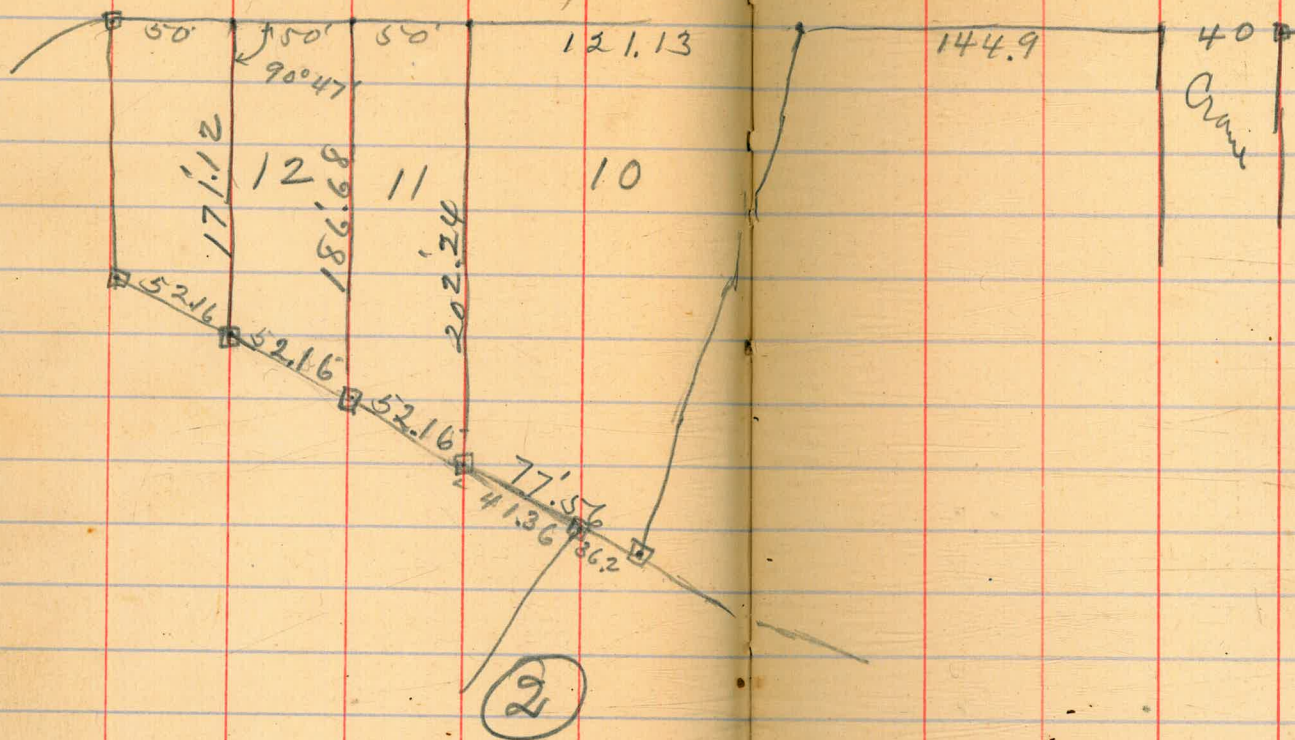 50' 50' 50' 121.13 144.9 40
90°47'
Crane
171.'12 12 186.'68 11 202.'24 10
52.16
52.16
52.16
77.'56
41.36 36.2
2